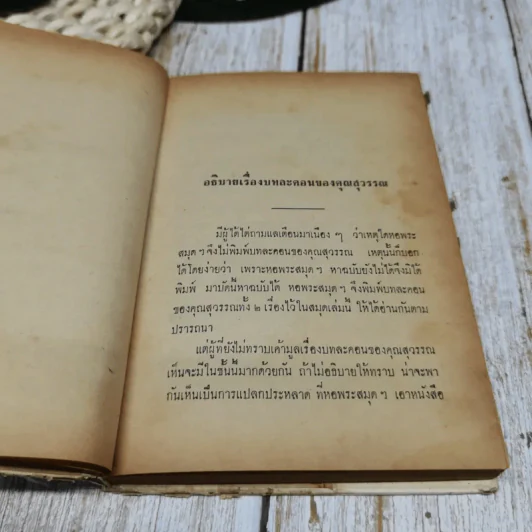 อธิบายเรื่องบทละคอนของคุณสุวรรณ
มีผู้ได้ไต่ถามแลเตือนมาเนือง ๆ ว่าเหตุใดหอพระ
สมุด ฯ จึงไม่พิมพ์บทละคอนของคุณสุวรรณ เหตุนั้นก็บอก
ได้โดยง่ายว่า เพราะหอพระสมุด ฯ หาฉบับยังไม่ได้จึงมิได้
พิมพ์ มาบัดนี้หาฉบับได้ หอพระสมุด ฯ จึงพิมพ์บทละคอน
ของคุณสุวรรณทั้ง ๒ เรื่องไว้ในสมุดเล่มนี้ ให้ได้อ่านกันตาม
ปรารถนา
แต่ผู้ที่ยังไม่ทราบเค้ามูลเรื่องบทละคอนของคุณสุวรรณ
เห็นจะมีในชั้นนี้มากด้วยกัน ถ้าไม่อธิบายให้ทราบ น่าจะพา
กันเห็นเป็นการแปลกประหลาด ที่หอพระสมุด ฯ เอาหนังสือ